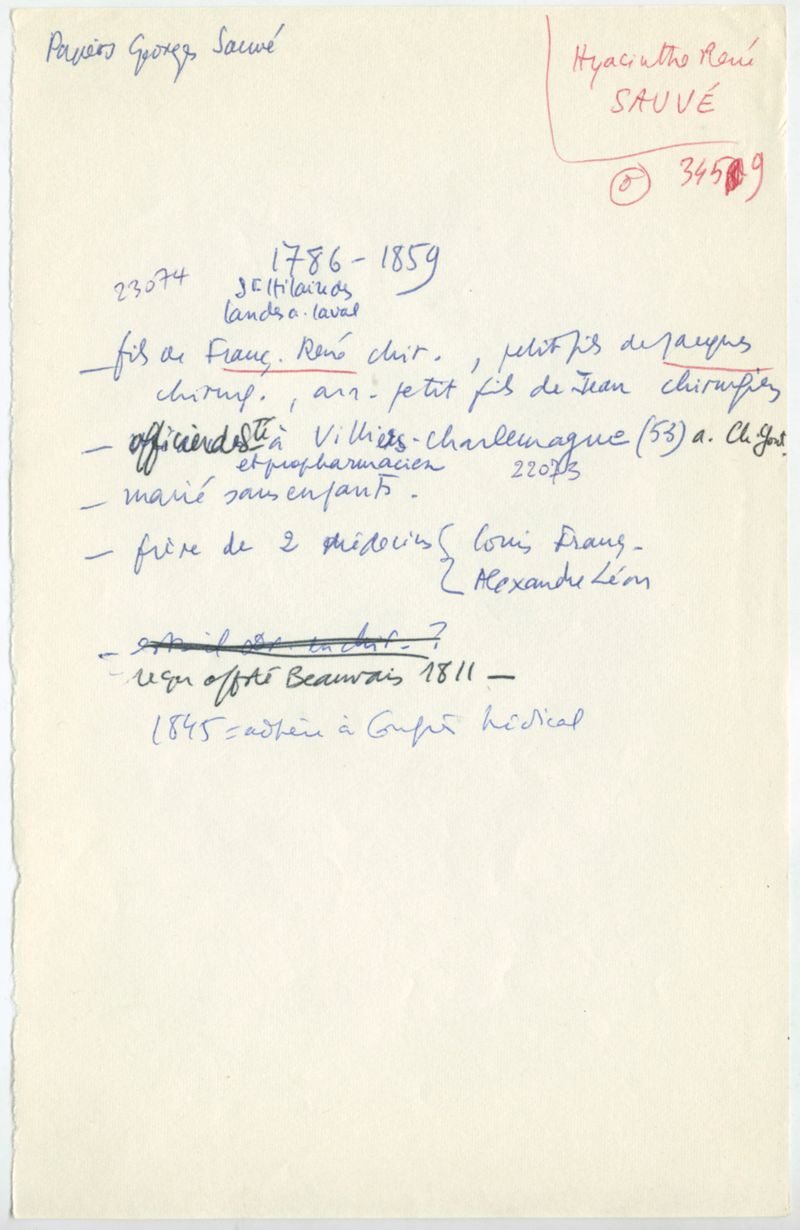 Papiers Georges Sauvé
Hyacinthe René
SAUVÉ
34509
1786 - 1859
23074
St Hilaire des
landes a. laval
- fils de Franç. René chir. , petit fils de Jacques
chirurg. , arr. petit fils de Jean chirurgien
- officier de Sté à Villiers-Charlemagne (53) a. Ch. Gont.
et propharmacien 22073
- marié sans enfants.
- frère de 2 médecins { Louis Franç.
Alexandre Léon
- est-il Dr. en chir. ?
reçu off sté Beauvais 1811 -
1845 = adhère à Congrès Médical